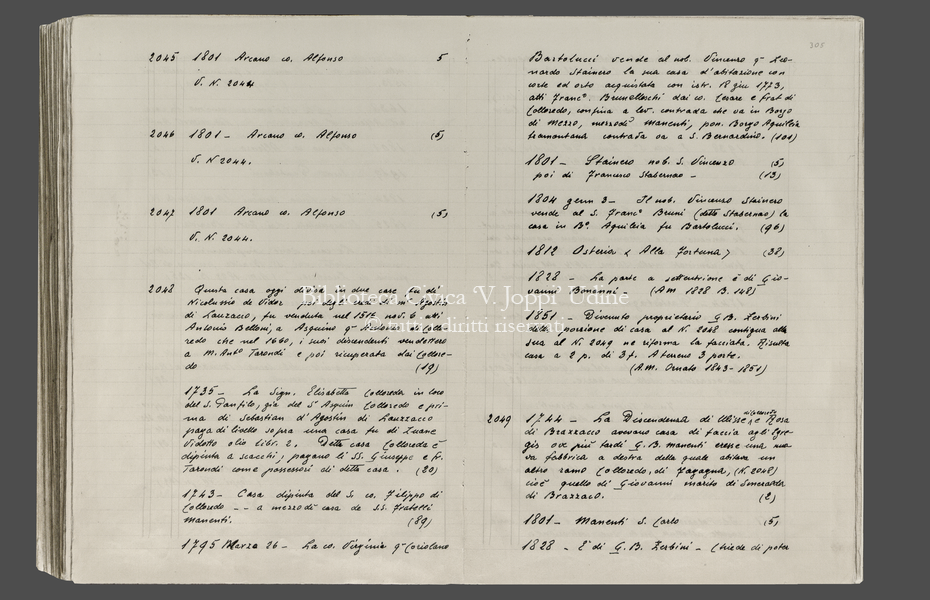 2045 1801 Arcano co. Alfonso 5
V. N. 2044
2046 1801 - Arcano co. Alfonso (5)
V. N. 2044.
2047 1801 Arcano co. Alfonso (5)
V. N. 2044.
2048 Questa casa oggi divisa in due case fu di
Nicolussio de Vidor poi
di Lauzacco, fu venduta nel 1517 nov. 6 atti
Antonio Belloni, a Asquino q.m Collo-
redo che nel 1660, i suoi discendenti vendettero
a m. Ant.o Tarondi e poi ricuperata dai Collore-
do (19)
1735 - La Sign. Elisabetta Colloredo in loco
del S. Panfilo, già del S.r Asquin Colloredo e pri-
ma di Sebastian d'Agostin di Lauzacco
paga di livello sopra una casa fu di Zuane
Vidotto olio libr. 2. Detta casa Colloreda è
dipinta a scacchi, pagano li SS. Giuseppe e fr.
Tarondi come possessori di detta casa. (20)
1743 - Casa dipinta del S. co. Filippo di
Colloredo -- a mezzodì casa de SS. Fratelli
Manenti. (89)
1795 Marzo 26 - La co. Virginia q.m Coriolano
305
Bartolucci vende al nob. Vincenzo q.m Leo-
nardo Stainero la sua casa d'abitazione con
corte ed orto acquistata con istr. 12 giu 1773,
atti Franc.o Brunelleschi dai co. Cesare e frat. di
Colloredo, confina a lev. contrada che va in Borgo
di Mezzo, mezzodì Manenti, pon. Borgo Aquileia
tramontana contrada va a S. Bernardino. (101)
1801 - Stainero nob. S. Vincenzo (5)
poi di Francesco Stabernao - (13)
1804 genn 3 - Il nob. Vincenzo Stainero
vende al S. Franc.o Bruni (detto Stabernao) la
casa in B.o Aquileia fu Bartolucci. (96)
1812 Osteria < Alla Fortuna > (38)
1828 - La parte a settentrione è di Gio-
vanni Bonanni - (AM 1828 B. 148)
1851 - Divenuto proprietario G.B. Zerbini
della porzione di casa al N. 2048 contigua alla
sua al N. 2049 ne riforma la facciata. Risulta
casa a 2 p. di 3 f. A terreno 3 porte.
(A.M. Ornato 1843-1851)
2049 1744 - La Discendenza di Ulisse e Rosa
di Brazzacco avevano casa di faccia agli Gre-
gis ove più tardi G.B. Manenti eresse una nuo-
va fabbrica a destra della quale abitava un
altro ramo Colloredo, di Fagagna, (N. 2048)
cioè quello di Giovanni marito di Smeralda
di Brazzaco. (2)
1801 - Manenti S. Carlo (5)
1828 - È di G.B. Zerbini - Chiede di poter
Biblioteca Civica 'V. Joppi' Udine
tutti i diritti riservati